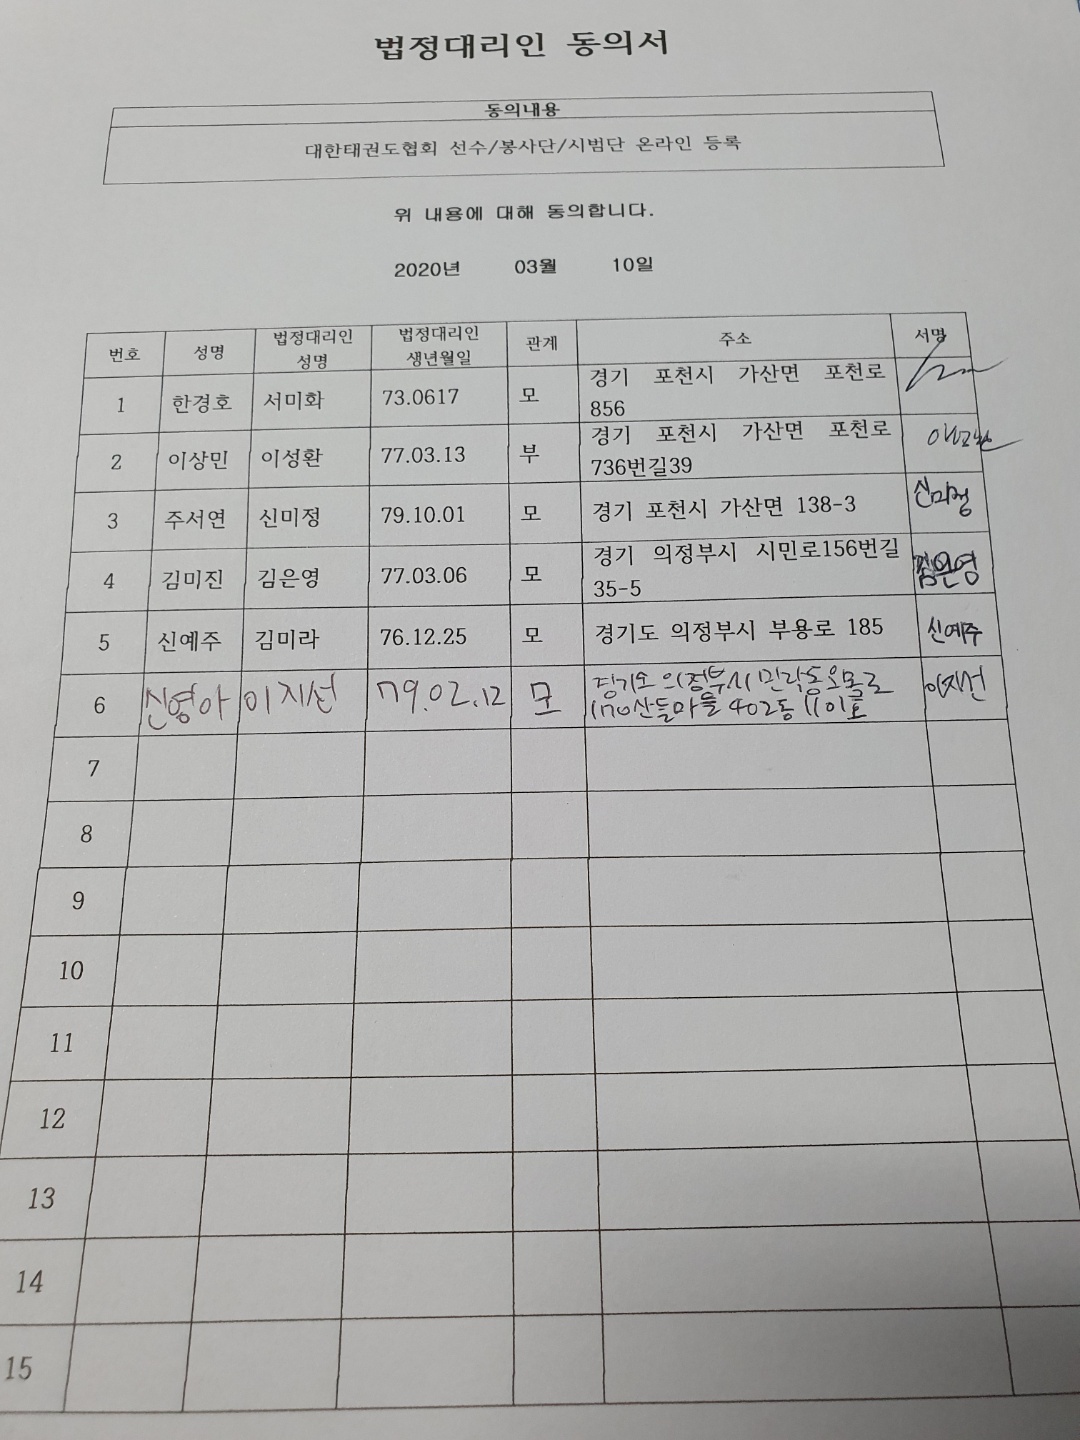 법정대리인 동의서
동의내용
대한태권도협회 선수/봉사단/시범단 온라인 등록
위 내용에 대해 동의합니다.
2020년 03월 10일
번호 성명 법정대리인 성명 법정대리인 생년월일 관계 주소 서명
1 한경호 서미화 73.0617 모 경기 포천시 가산면 포천로
856
2 이상민 이성환 77.03.13 부 경기 포천시 가산면 포천로
736번길39
3 주서연 신미정 79.10.01 모 경기 포천시 가산면 138-3 신미정
4 김미진 김은영 77.03.06 모 경기 의정부시 시민로156번길
35-5 김은영
5 신예주 김미라 76.12.25 모 경기도 의정부시 부용로 185 신예주
6 신영아 이지선 79.02.12 모 경기도 의정부시 민락동오목로
170산들마을 402동 1101호 이지선
7
8
9
10
11
12
13
14
15